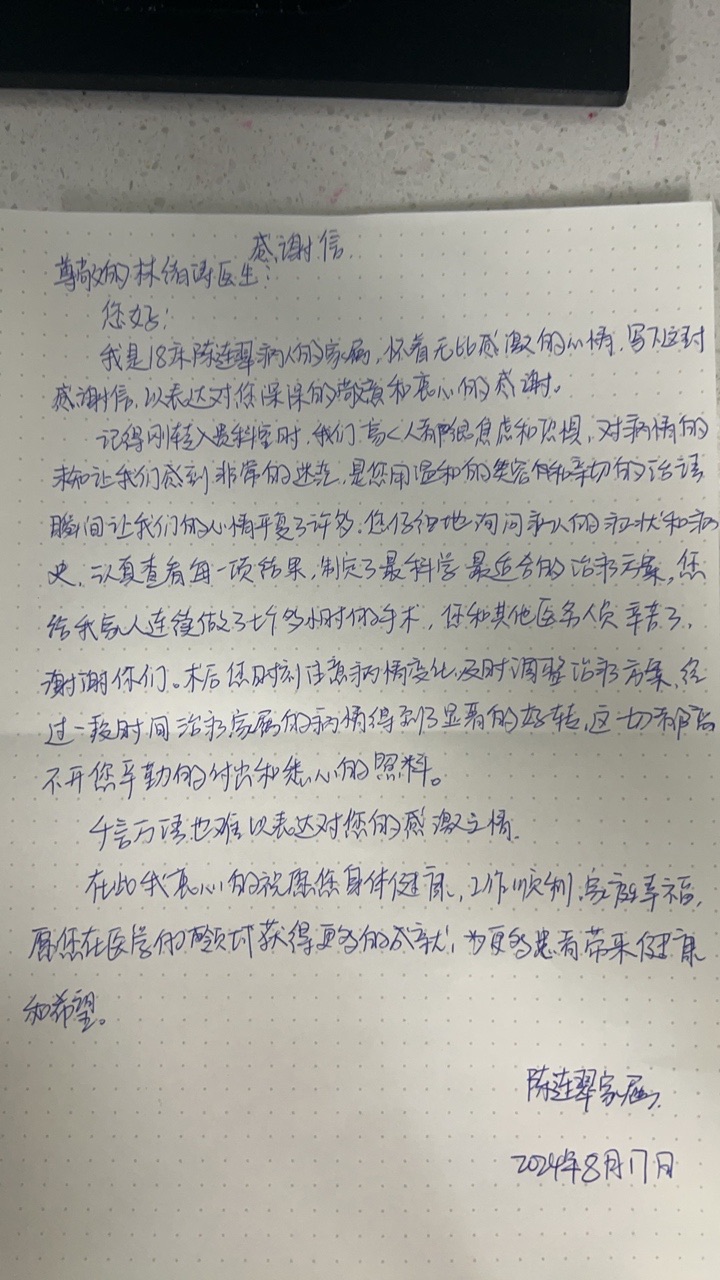 感谢信
尊敬的林绪涛医生:
您好!
我是18床陈连翠病人的家属,怀着无比感激的心情,写下这封
感谢信,以表达对您深深的敬意和衷心的感谢。
记得刚转入贵科室时,我们家人都很焦虑和恐惧,对病情的
未知让我们感到非常的迷茫,是您用温和的笑容和亲切的话语
瞬间让我们的心情平复了许多,您仔细地询问病人的症状和病
史,认真查看每一项结果,制定了最科学最适合的治疗方案,您
给我家人连续做了七个多小时的手术,您和其他医务人员辛苦了,
谢谢你们。术后您时刻注意病情变化,及时调整治疗方案,经
过一段时间治疗家属的病情得到了显著的好转,这一切都离
不开您辛勤的付出和悉心的照料。
千言万语也难以表达对您的感激之情,
在此我衷心的祝愿您身体健康,工作顺利,家庭幸福,
愿您在医学的领域获得更多的成就,为更多患者带来健康
和希望。
陈连翠家属
2024年8月17日